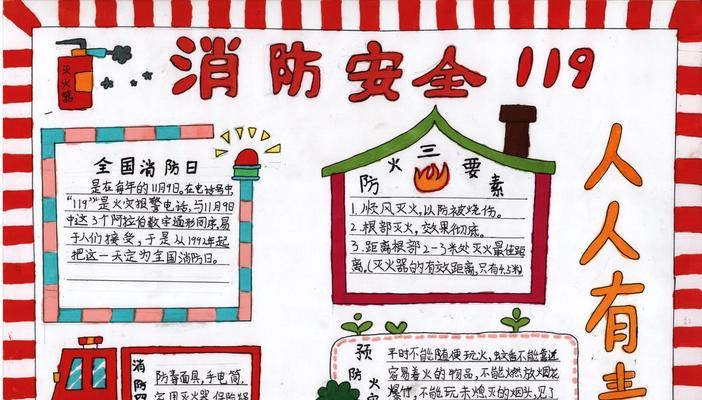 消防安全 119
灭火器
全国消防日
是在每年的11月9日,在电话号中
"119"是火灾报警电话,与11月9日
中这3个阿拉伯数字通形同序,易
于人们接受,于是从1992年起
把这一天定为全国消防日。
防火三要素
1.顺风灭火,以防被烧伤。
2.根部灭火,效果彻底。
3.距离根部2-3米处灭火最佳距
离,(灭火器的有效距离,只有4.5米)
人人有责
消防四
防毒面具,手电筒,
家用灭火器 保险绳
预防火灾
平时不能随便玩火,蚊香不能靠近
容易着火的物品,不能燃放烟花
爆竹,不能玩未熄灭的烟头,见了